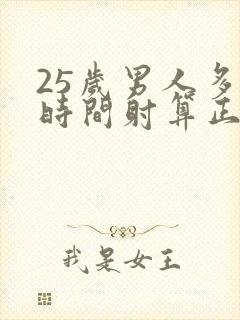 25歲男人多
時間射算正
我是女王